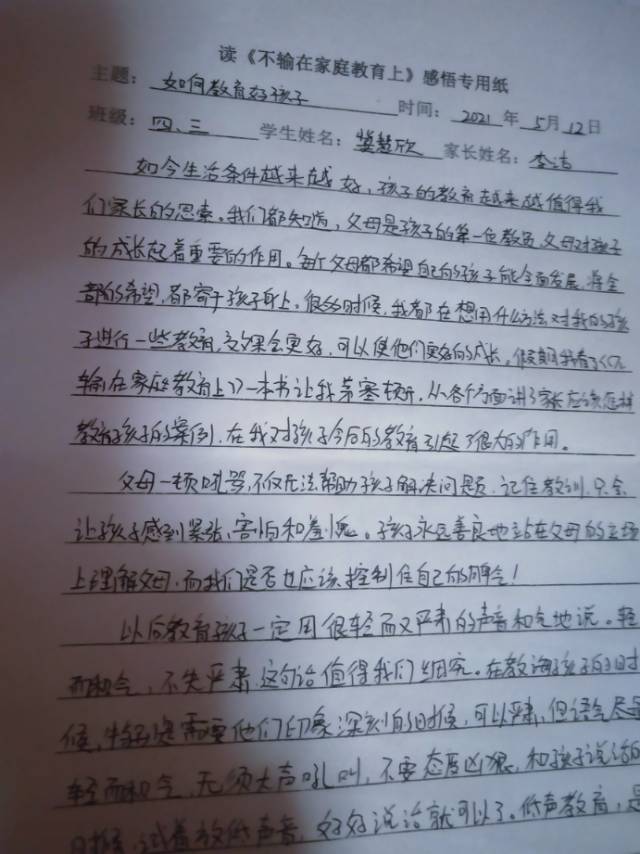 读《不输在家庭教育上》感悟专用纸
主题：如何教育好孩子 时间：2021年5月12日
班级：四、三 学生姓名：冀慧欣 家长姓名：李洁
如今生活条件越来越好，孩子的教育越来越值得我
们家长的思索。我们都知道，父母是孩子的第一位教员，父母对孩子
的成长起着重要的作用。每个父母都希望自己的孩子能全面发展，将全
部的希望，都寄于孩子身上。很多时候，我都在想用什么方法对我的孩
子进行一些教育，效果会更好，可以使他们更好的成长。假期我看了《不
输在家庭教育上》一本书让我茅塞顿开，从各个方面讲了家长应该怎样
教育孩子的案例，在我对孩子今后的教育引起了很大的作用。
父母一顿吼骂，不仅无法帮助孩子解决问题，记住教训，只会
让孩子感到紧张、害怕和羞愧。孩子永远善良地站在父母的立场
上理解父母，而我们是否也应该控制住自己的脾气！
以后教育孩子一定用很轻而又严肃的声音和气地说。轻
而和气，不失严肃，这句话值得我们细究。在教诲孩子的时
候，特别是需要他们印象深刻的时候，可以严肃，但语气尽量
轻而和气，无须大声吼叫，不要态度凶狠，和孩子说话的
时候，试着放低声音，好好说话就可以了。低声教育，是